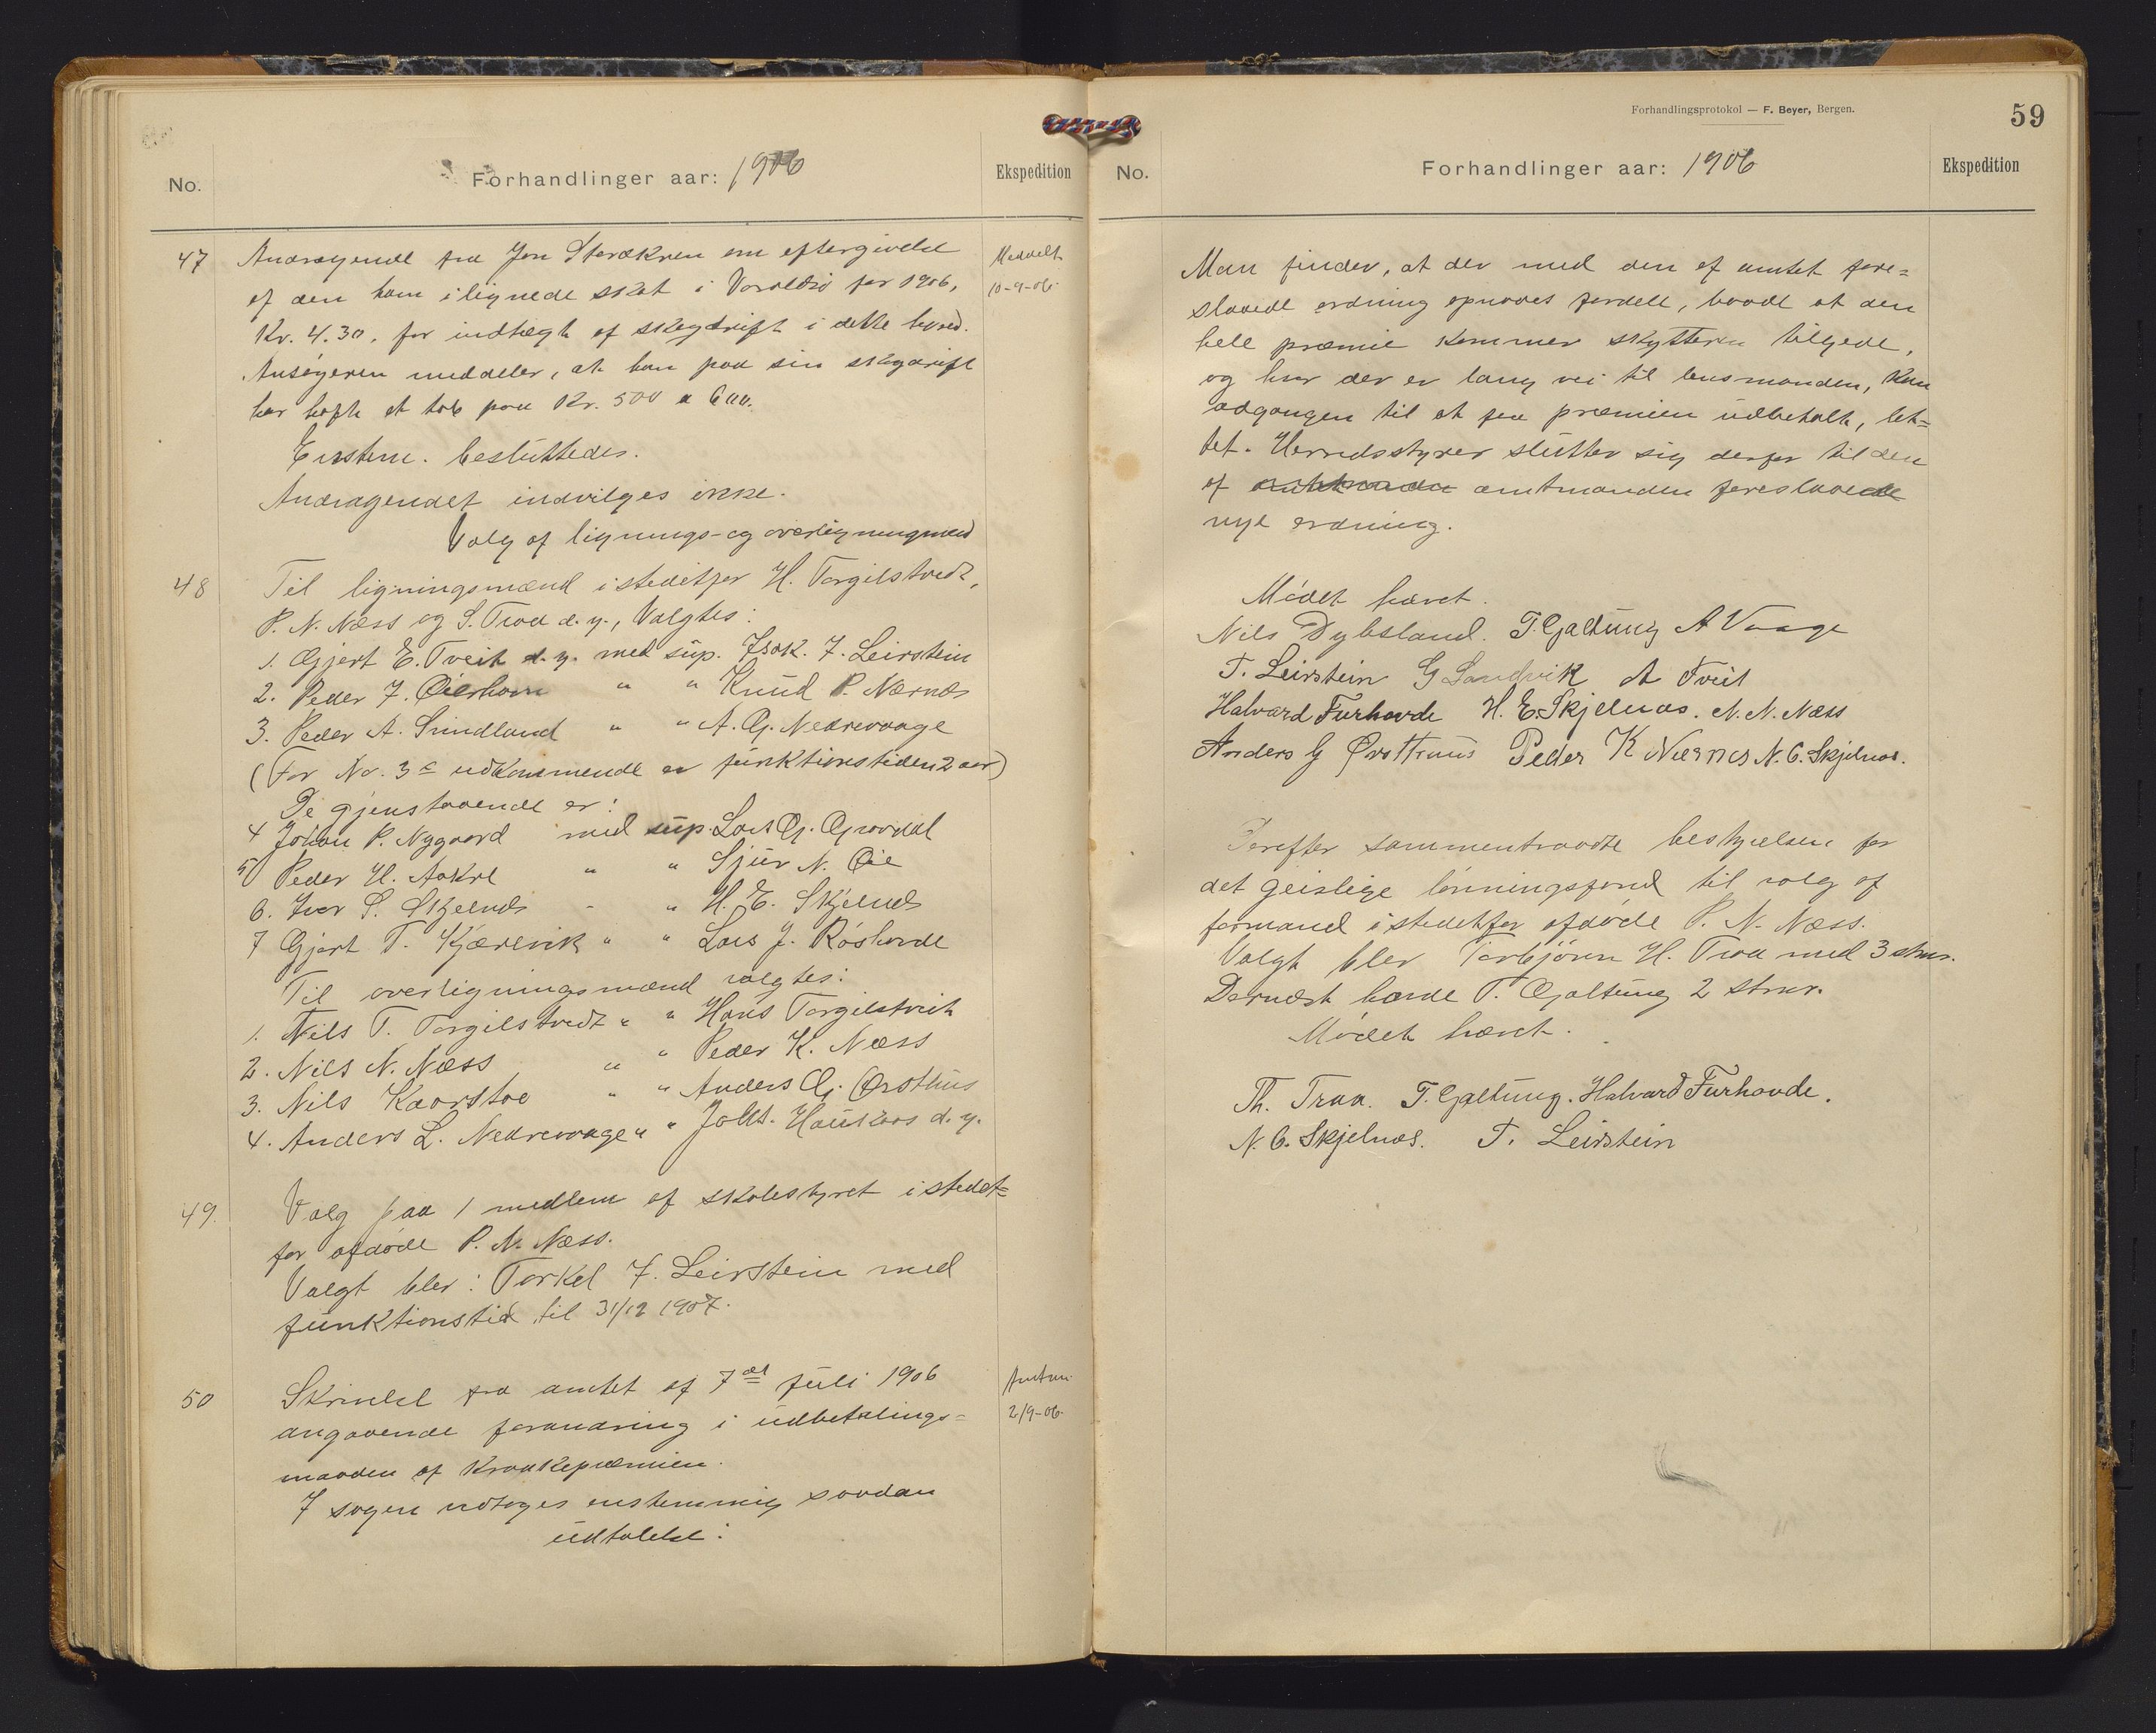 No.
Forhandlinger aar: 1906
Ekspedition
47
Andragende fra Jon Staråkren om eftergivelse
Meddelt
10-9-06.
af den ham ilignede skat i Varaldsø for 1906,
Kr. 4.30, for indtægt af skogdrift i dette herred.
Ansøgeren meddeler, at han paa sin skogdrift
har havt et tab paa Kr. 500 a 600.
Enstem. besluttedes.
Andragendet indvilges ikke.
Valg af lignings- og overligningmænd
48
Til ligningsmænd istedetfor H. Torgilstvedt,
P. N. Næss og S. Traa d. y., Valgtes:
1. Gjert E. Tveit d. y. med sup. Isak. J. Leirstein
2. Peder J. Øierhavn " " Knud P. Nærnes
3. Peder A. Sundland " " A. G. Nedrevaage
(For No. 3s udkommende er funktionstiden 2 aar)
De gjenstaaende er:
4 Johan P. Nygaard med sup. Lars G. Gravdal
5 Peder H. Aakre " " Sjur N. Øie
6. Iver S. Skjelnes - " H. E. Skjelnes
7 Gjert T. Kjærevik " " Lars J. Røshovde
Til overligningsmænd valgtes:
1. Nils T. Torgilstvedt " " Hans Torgilstveit
2. Nils N. Næss " " Peder K. Næss
3. Nils Kaarstoe " " Anders G. Ørsthus
4. Anders L. Nedrevaage " " Johs. Haukaas d. y.
49.
Valg paa 1 medlem af skolestyret istedet=
for afdøde P. N. Næss.
Valgt blev: Torkel J. Leirstein med
funktionstid til 31/12 1907.
50
Skrivelse fra amtet af 7de juli 1906
Amtm.
2/9-06.
angaaende forandring i udbetalings=
maaden af Kraakepræmien.
I sagen vedtoges enstemmig saadan
udtalelse:
Forhandlingsprotokol — F. Beyer, Bergen.
59
No.
Forhandlinger aar: 1906
Ekspedition
Man finder, at der med den af amtet fore=
slaaede ordning opnaaes fordele, baade at den
hele præmie kommer skytteren tilgode,
og hvor der er lang vei til lensmanden, kan
adgangen til at faa præmien udbetalt, let=
tet. Herredsstyret slutter sig derfor til den
af amtmanden foreslaaede
nye ordning.
Mødet hævet.
Nils Dybsland. T. Galtung A Vaage
T. Leirstein G Sandvik A Tveit
Halvard Furhovde H. E. Skjelnæs. N. N. Næss
Anders G Ørsthuus Peder K Nærnes N. C. Skjelnæs.
Derefter sammentraadte bestyrelsen for
det geislige lønningsfond til valg af
formand istedetfor afdøde P. N. Næss.
Valgt blev Torbjørn H. Traa med 3 stmr.
Dernæst havde T. Galtung 2 stmr.
Mødet hævet.
Th. Traa. T. Galtung. Halvard Furhovde.
N. C. Skjelnæs. T. Leirstein